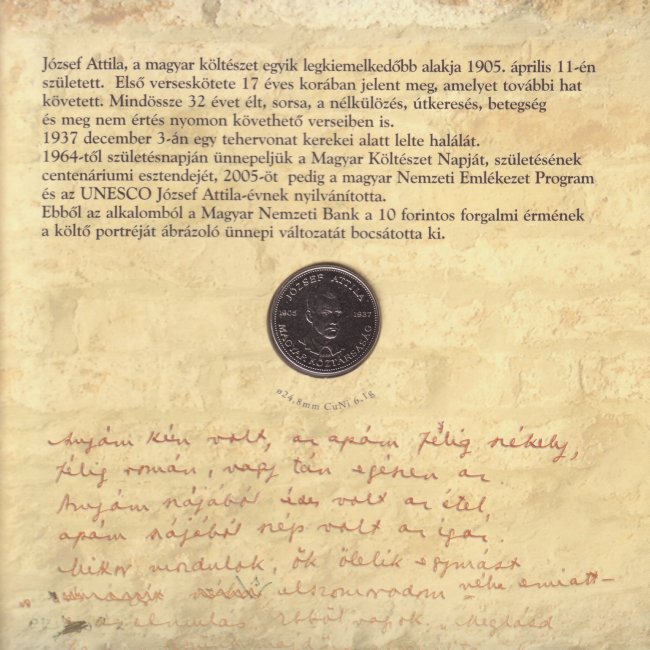 József Attila, a magyar költészet egyik legkiemelkedőbb alakja 1905. április 11-én
született.  Első verseskötete 17 éves korában jelent meg, amelyet további hat
követett. Mindössze 32 évet élt, sorsa, a nélkülözés, útkeresés, betegség
és meg nem értés nyomon követhető verseiben is.
1937 december 3-án egy tehervonat kerekei alatt lelte halálát.
1964-től születésnapján ünnepeljük a Magyar Költészet Napját, születésének
centenáriumi esztendejét, 2005-öt  pedig a magyar Nemzeti Emlékezet Program
és az UNESCO József Attila-évnek nyilvánította.
Ebből az alkalomból a Magyar Nemzeti Bank a 10 forintos forgalmi érmének
a költő portréját ábrázoló ünnepi változatát bocsátotta ki.
JÓZSEF ATTILA
1905 1937
MAGYAR KÖZTÁRSASÁG
ø24,8mm CuNi 6,1g
Anyám kún volt, az apám félig székely,
félig román, vagy tán egészen az.
Anyám szájából édes volt az étel,
apám szájából szép volt az igaz.
Mikor mozdulok, ők ölelik egymást
elszomorodom néha emiatt –
az elmulás. Ebből vagyok. Meglásd